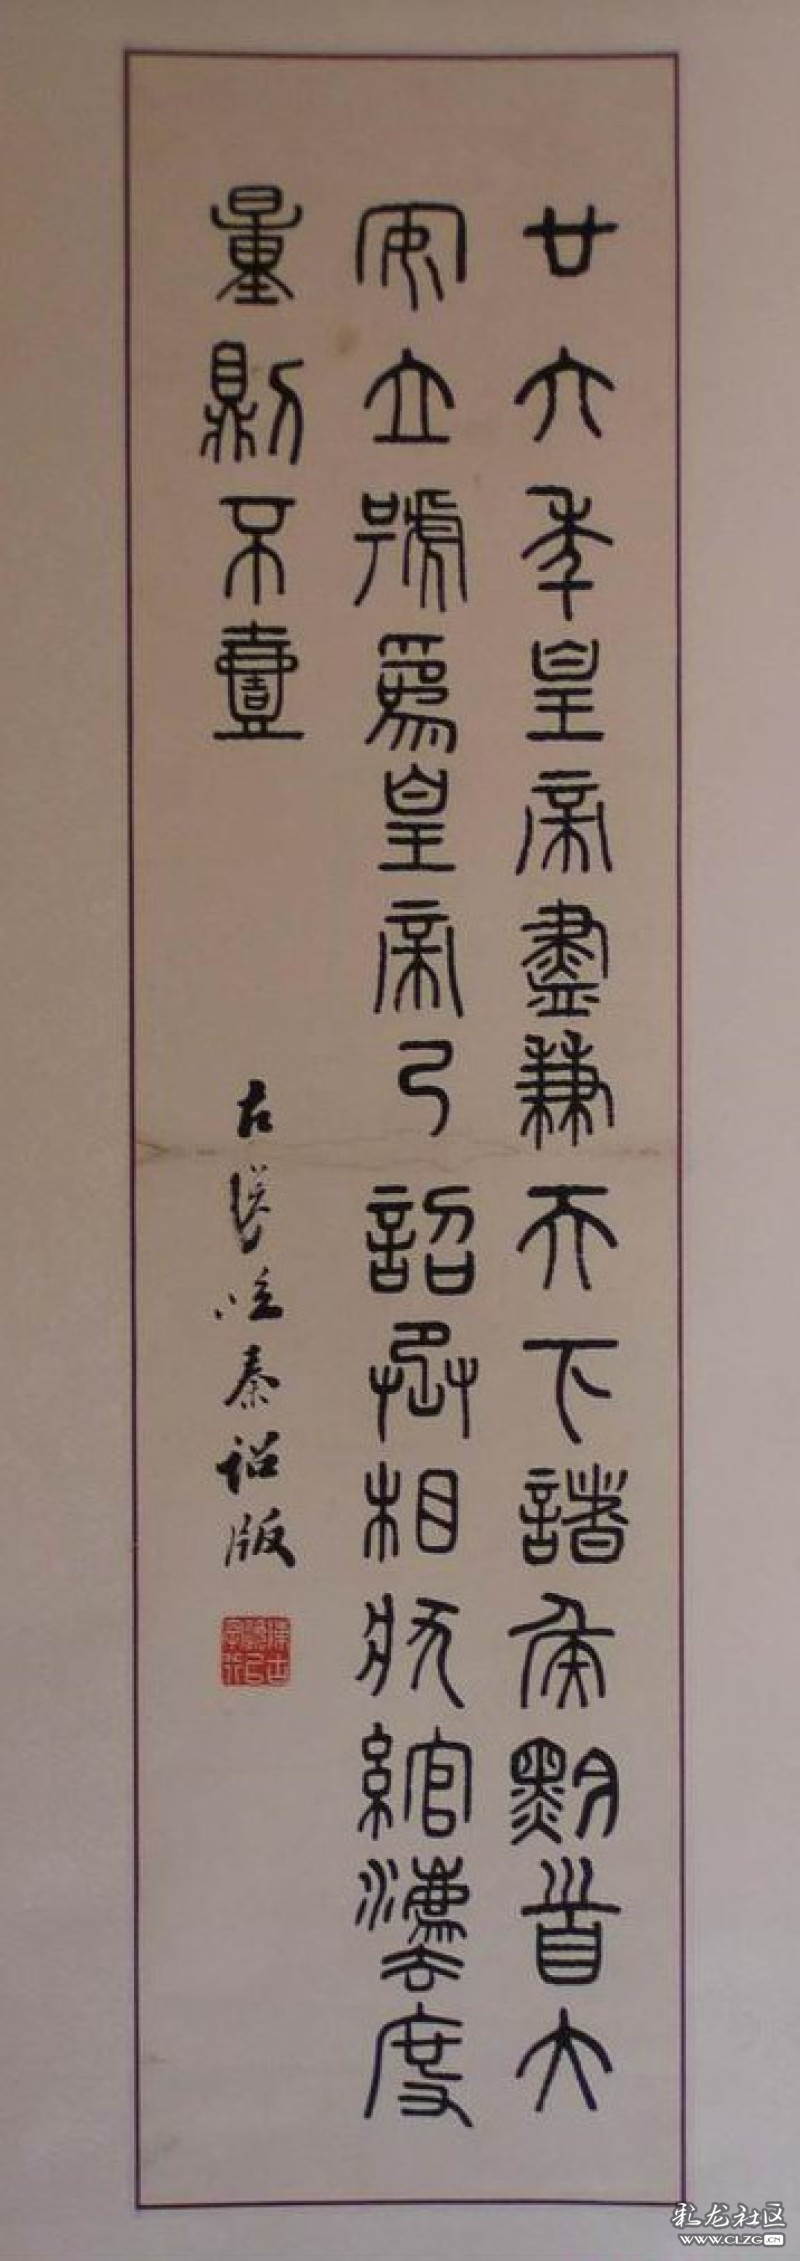 廿六年皇帝盡兼天下諸侯黔首大
安立號為皇帝乃詔丞相狀綰灋度
量則不壹
秦詔版
彩龙社区
WWW.CLZG.CN